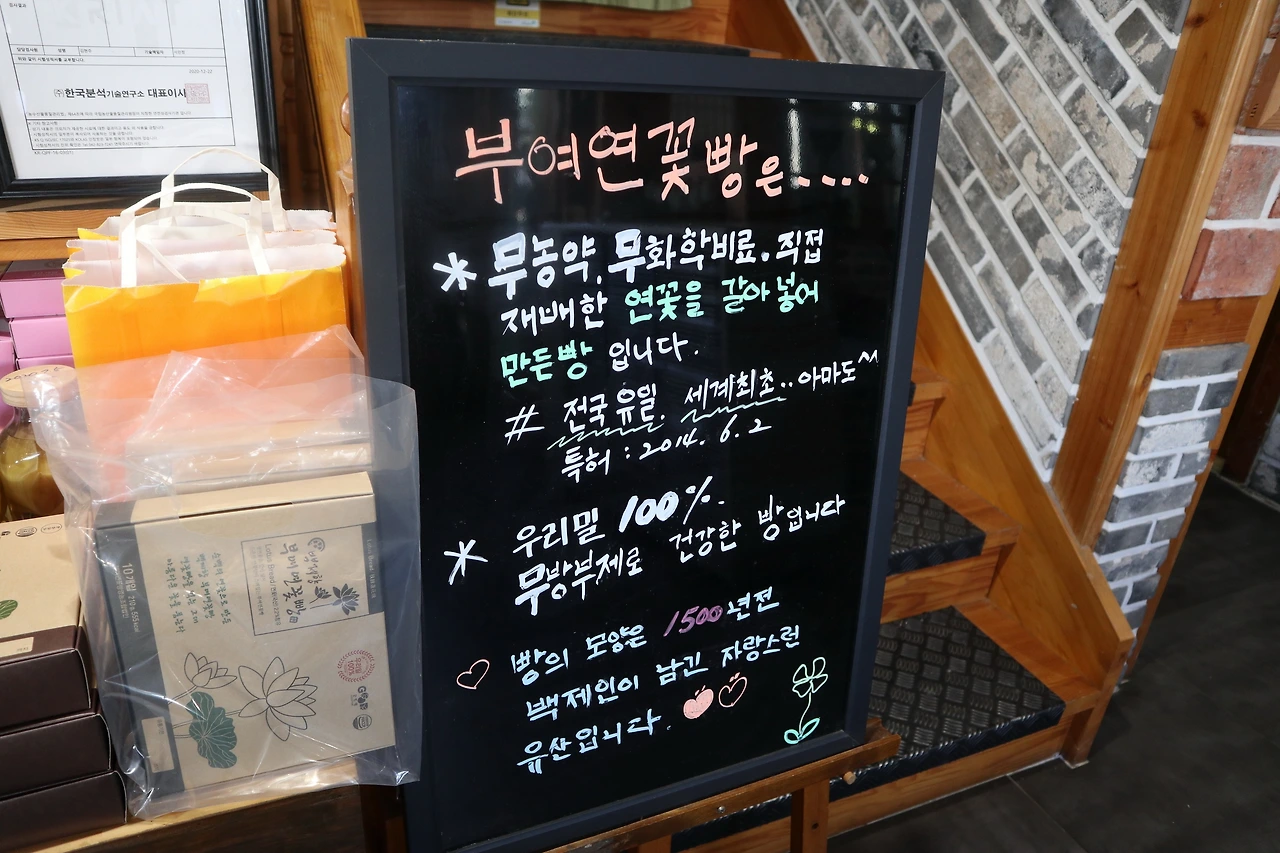 2020-12-22
㈜한국분석기술연구소 대표이사
부여연꽃빵은....
* 무농약. 무화학비료. 직접
재배한 연꽃을 갈아 넣어
만든빵 입니다.
# 전국 유일. 세계최초.. 아마도^^
특허 : 2014. 6. 2
* 우리밀 100%.
무방부제로 건강한 빵입니다
♡ 빵의 모양은 1500년전
백제인이 남긴 자랑스런
유산입니다.
부여연꽃빵
Lotus Bread
10개입